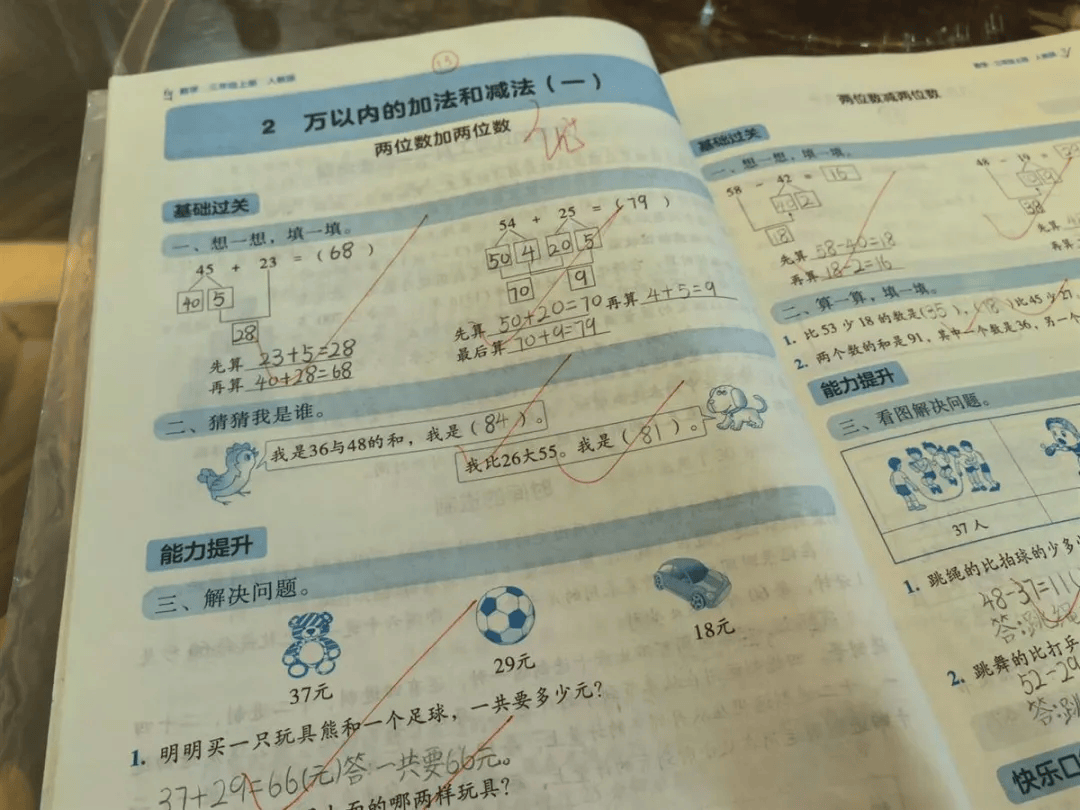 数学 三年级上册 人教版
13
2 万以内的加法和减法(一)
两位数加两位数
基础过关
一、想一想,填一填。
45 + 23 = (68)
40 5
28
先算 23+5=28
再算 40+28=68
54 + 25 = (79)
50 4 20 5
70 9
先算 50+20=70 再算 4+5=9
最后算 70+9=79
二、猜猜我是谁。
我是36与48的和,我是(84)。
我比26大55。我是(81)。
能力提升
三、解决问题。
37元
29元
18元
1. 明明买一只玩具熊和一个足球,一共要多少元?
37+29=66(元)答一共要66元。
面的哪两样玩具?
两位数减两位数
基础过关
一、想一想,填一填。
58 - 42 =
40 2
18
先算 58-40=18
再算 18-2=16
48 - 19 =
38
先算
再算
二、算一算,填一填。
1. 比53少18的数是(35),(18)比45少27
2. 两个数的和是91,其中一个数是36,另一个
能力提升
三、看图解决问题。
37人
1. 跳绳的比拍球的少多少
48-37=11(
答:跳
2. 跳舞的比打乒
52-29
答:跳
快乐口